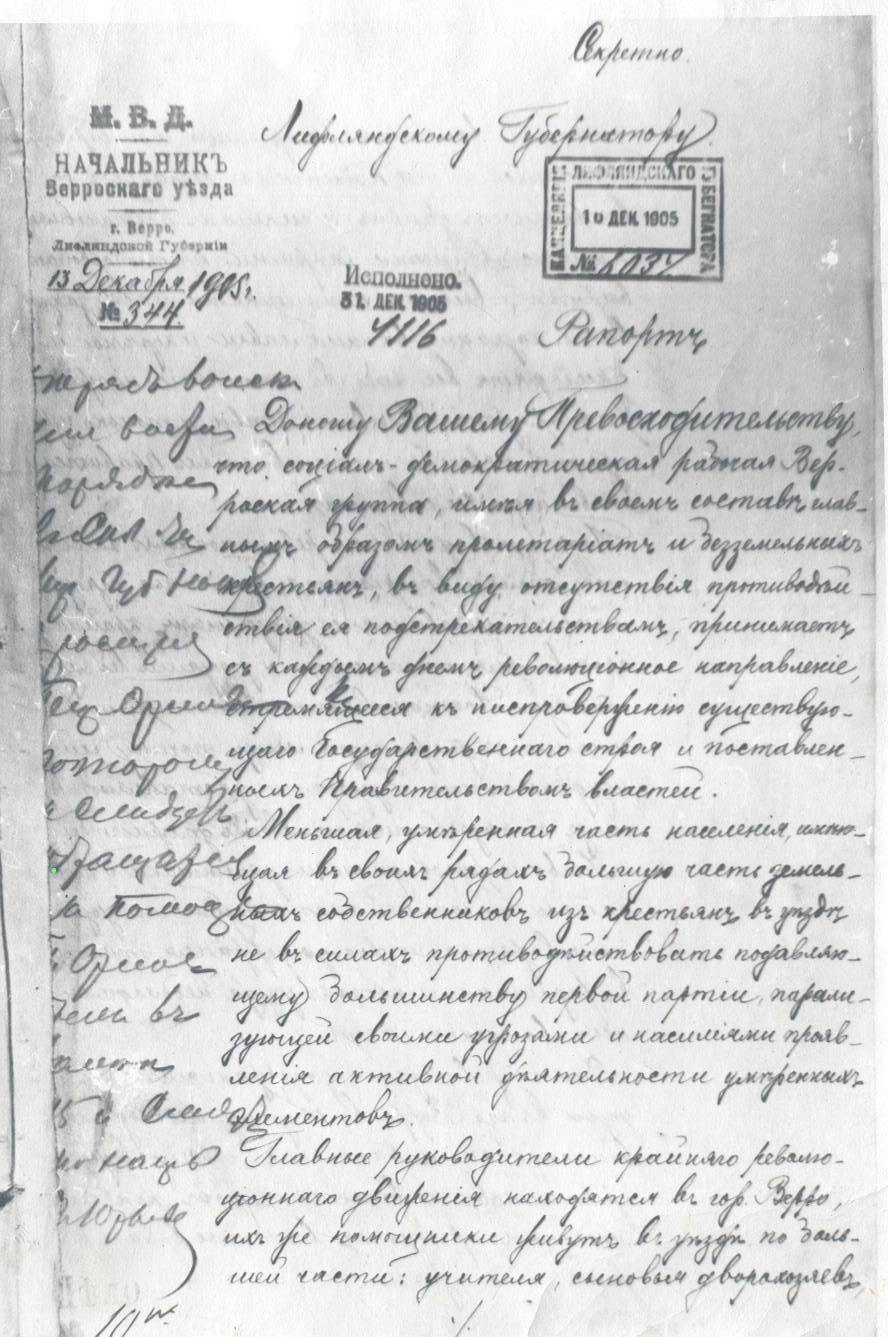 Секретно.
М. В. Д.
НАЧАЛЬНИКЪ
Верроскаго уѣзда
г. Верро,
Лифляндской Губерніи
13 Декабря 1905.
№ 344.
Лифляндскому Губернатору.
КАНЦЕЛЯРІЯ ЛИФЛЯНДСКАГО ГУБЕРНАТОРА
ДЕК. 1905
№ 6037
Исполнено.
31. ДЕК. 1905
4116
Рапортъ
Доношу Вашему Превосходительству,
что соціалъ-демократическая рабочая Вер-
роская группа, имѣя въ своемъ составѣ глав-
нымъ образомъ пролетаріатъ и безземельныхъ
крестьянъ, въ виду отсутствія противодѣй-
ствія ея подстрекательствамъ, принимаетъ
съ каждымъ днемъ революціонное направленіе,
стремящееся къ ниспроверженію существую-
щаго Государственнаго строя и поставлен-
ныхъ Правительствомъ властей.
Меньшая, умѣренная часть населенія, имѣю-
щая въ своихъ рядахъ большую часть земель-
ныхъ собственниковъ изъ крестьянъ въ уѣздѣ
не въ силахъ противодѣйствовать подавляю-
щему большинству первой партіи, парали-
зующей своими угрозами и насиліями прояв-
ленія активной дѣятельности умѣренныхъ
элементовъ.
Главные руководители крайняго револю-
ціоннаго движенія находятся въ гор. Верро,
ихъ же помощники живутъ въ уѣздѣ по боль-
шей части: учителя, сыновья дворохозяевъ,